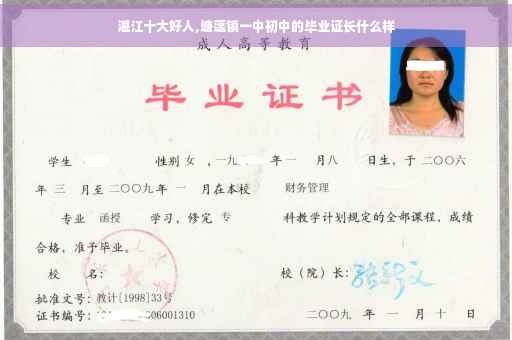 湛江十大好人,塘蓬镇一中初中的毕业证长什么样
成人高等教育
毕业证书
学生 性别 女 ，一九 年 一 月八 日生，于 二〇〇六
年 三 月至 二〇〇九 年 一 月在本校 财务管理
专业 函授 学习，修完 专 科教学计划规定的全部课程，成绩
合格，准予毕业。
校 名： 校（院）长：
批准文号：教计[1998]33号
证书编号： 06001310 二〇〇九 年 一 月 十 日